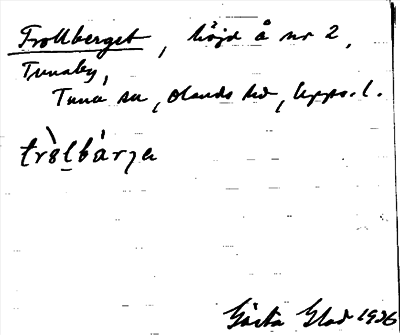 Trollberget, höjd å nr 2,
Tunaby,
Tuna sn, Olands hd, Upps. l.
tròlbárja
Gösta Glad 1936